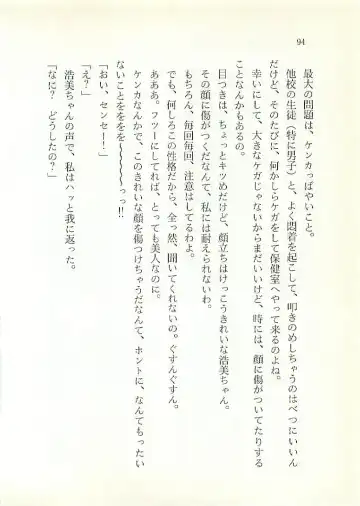 94
最大の問題は、ケンカっぱやいこと。
他校の生徒（特に男子）と、よく悶着を起こして、叩きのめしちゃうのはべつにいいん
だけど、そのたびに、何かしらケガをして保健室へやって来るのよね。
幸いにして、大きなケガじゃないからまだいいけど、時には、顔に傷がついてたりする
ことなんかもあるの。
目つきは、ちょっとキツめだけど、顔立ちはけっこうきれいな浩美ちゃん。
その顔に傷がつくだなんて、私には耐えられないわ。
もちろん、毎回毎回、注意はしてるわよ。
でも、何しろこの性格だから、全っ然、聞いてくれないの。ぐすんぐすん。
あああ。フツーにしてれば、とっても美人なのに。
ケンカなんかで、このきれいな顔を傷つけちゃうだなんて、ホントに、なんてもったい
ないことををを〜〜〜〜〜っっ!!
「おい、センセー！」
「え？」
浩美ちゃんの声で、私はハッと我に返った。
「なに？　どうしたの？」